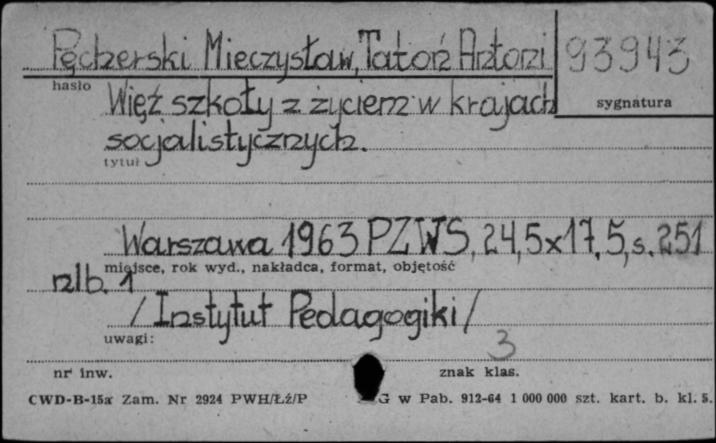 Pęcherski Mieczysław, Tatoń Antoni 93943
hasło
Więź szkoły z życiem w krajach
sygnatura
socjalistycznych.
tytuł
Warszawa 1963 PZWS, 24,5x17,5, s. 251
miejsce, rok wyd., nakładca, format, objętość
nlb. 1
/Instytut Pedagogiki/
uwagi:
3
nr inw. znak klas.
CWD-B-15a Zam. Nr 2924 PWH/Łź/P G w Pab. 912-64 1 000 000 szt. kart. b. kl. 5.